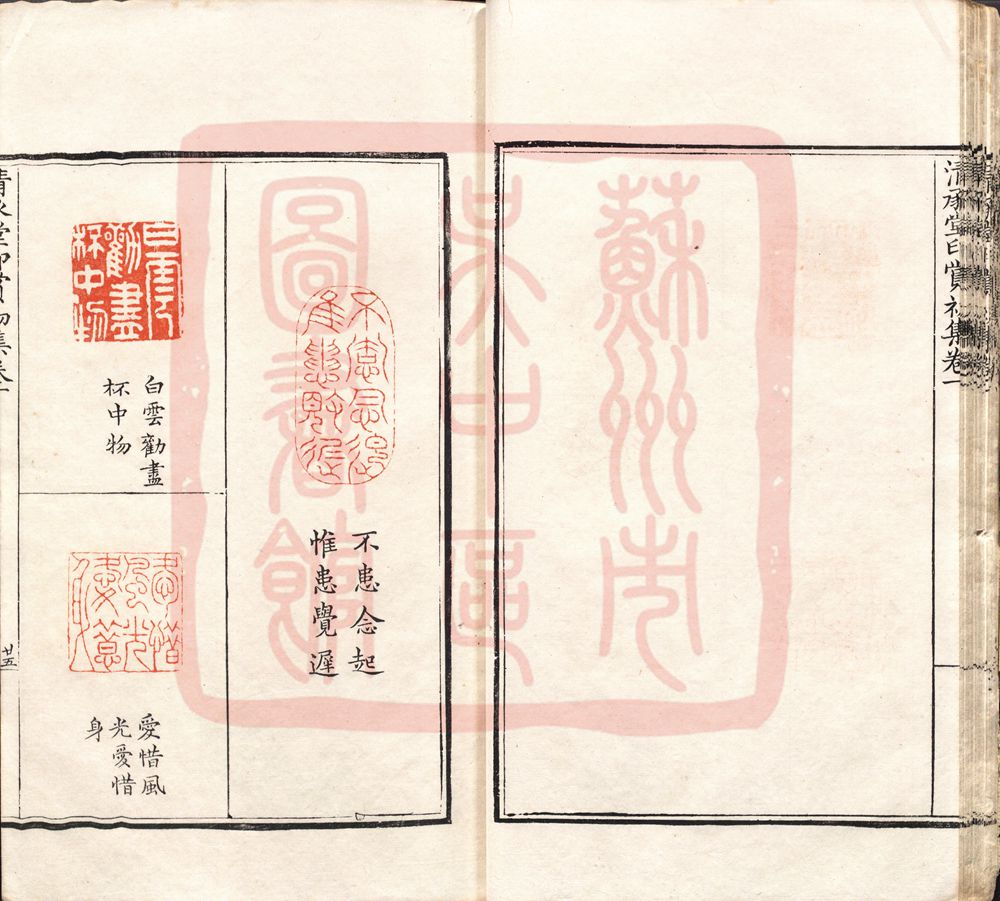 清承堂印賞初集卷一
蘇州市
吳中區
圖書館
不患念起
惟患覺遲
不患念起
惟患覺遲
白雲
勸盡
杯中物
白雲勸盡
杯中物
愛惜風
光愛惜
身
清承堂印賞初集卷一
廿五